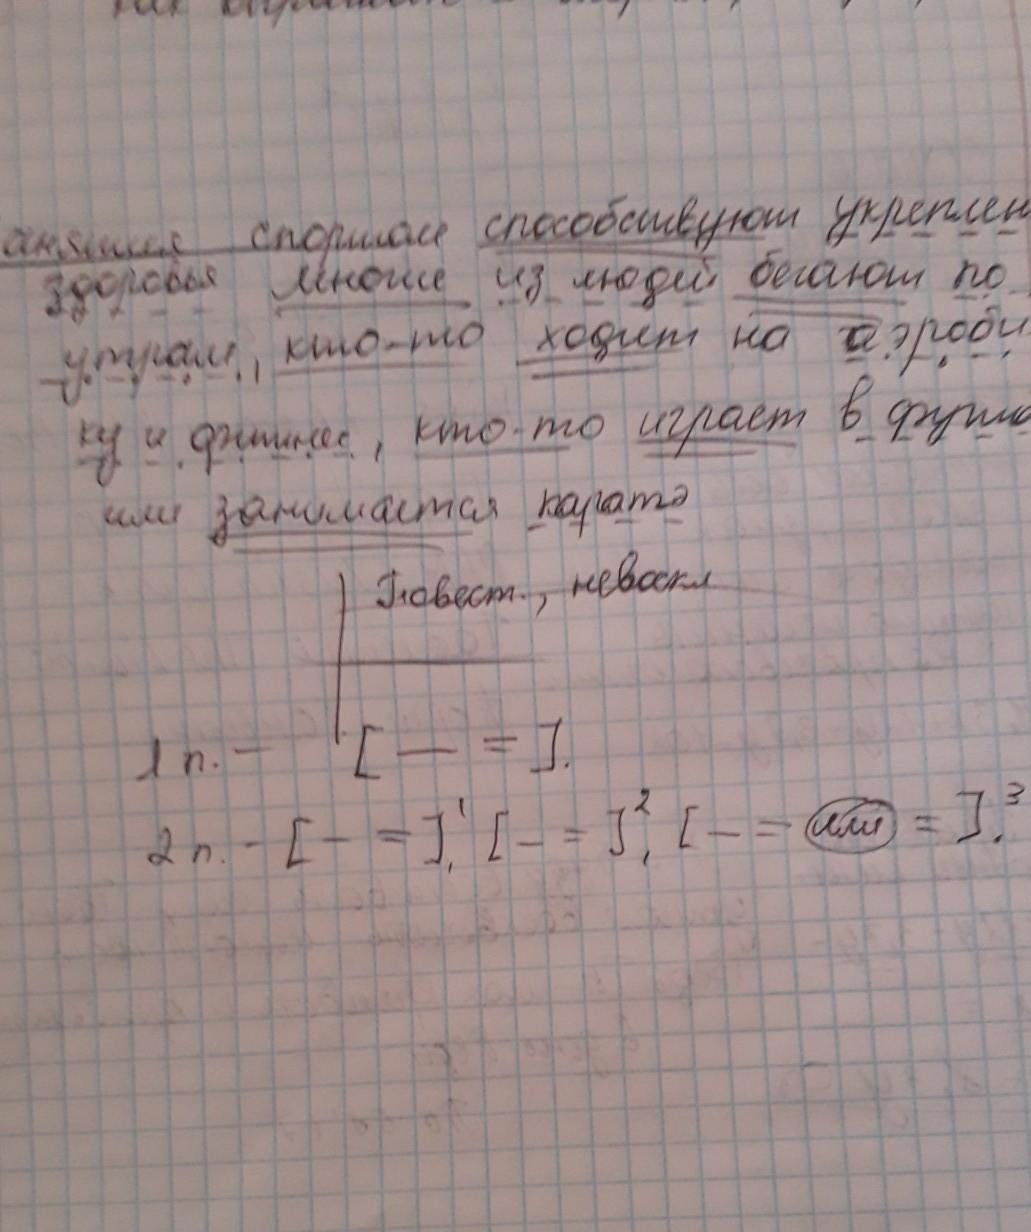 спортом способствуют укреплен
здоровья многие из людей бегают по
утрам, кто-то ходит на аэроби
ку и фитнес, кто-то играет в футбо
или занимается каратэ
Повест., невоскл
1 п. - [ — = ].
2 п. - [ — = ]¹, [ — = ]², [ — = или = ].³